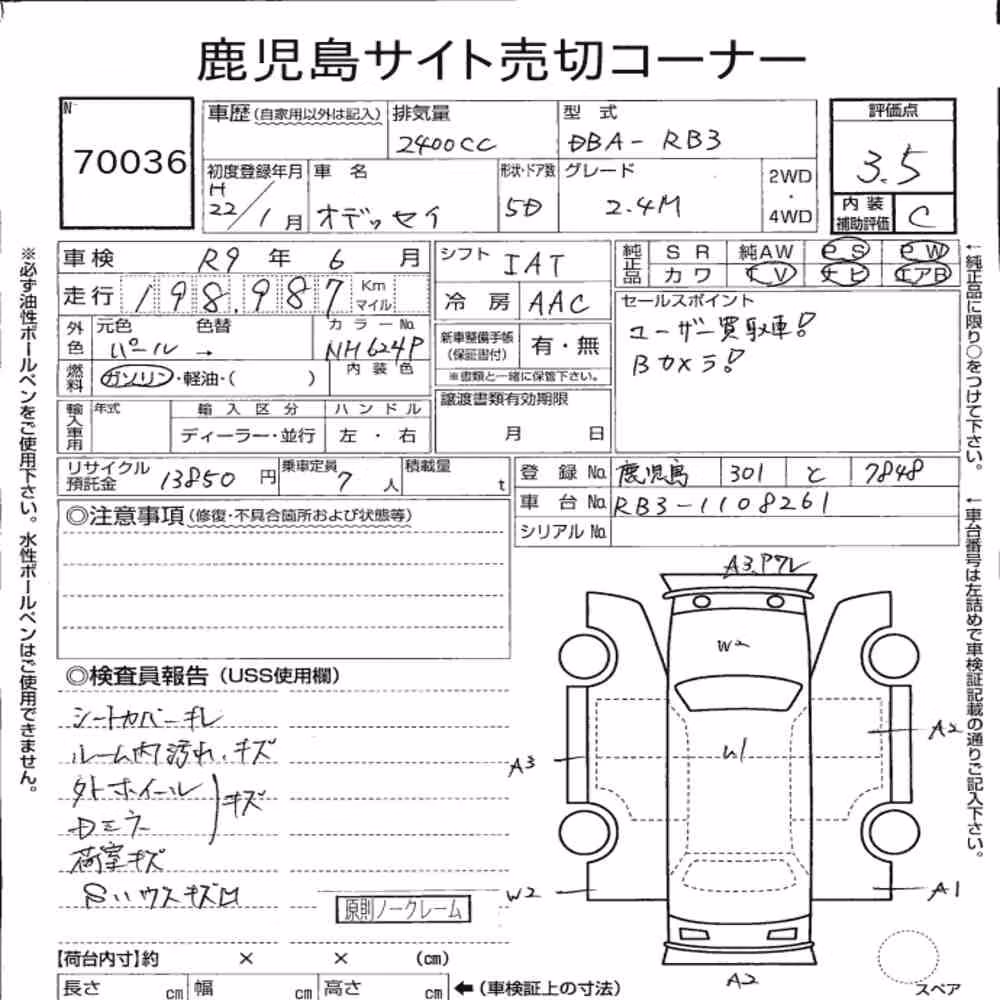 鹿児島サイト売切コーナー
No
70036
車歴(自家用以外は記入) 排気量 型 式
2400CC DBA-RB3
初度登録年月 車 名 形状・ドア数 グレード
H22/1月 オデッセイ 5D 2.4M
2WD・4WD
評価点
3.5
内装補助評価 C
車検 R9 年 6 月
走行 198,987 Km マイル
シフト IAT
冷房 AAC
純正品 SR 純AW PS PW
カワ TV ナビ エアB
外色 元色 色替 カラーNo.
パール → NH624P
燃料 ガソリン・軽油・( ) 内装色
新車整備手帳(保証書付) 有・無
※書類と一緒に保管下さい。
セールスポイント
ユーザー買取車!
Bカメラ!
輸入車用 年式 輸入区分 ハンドル
ディーラー・並行 左・右
譲渡書類有効期限
月 日
リサイクル預託金 13850 円 乗車定員 7 人 積載量 t
登録No. 鹿児島 301 と 7848
車台No. RB3-1108261
シリアルNo.
◎注意事項(修復・不具合箇所および状態等)
◎検査員報告(USS使用欄)
シートカバーキレ
ルーム内汚れ、キズ
外ホイール
Dミラー
)キズ
荷室キズ
原則ノークレーム
A3.Pワレ
W2
U1
A2
A3
W2
A1
A2
スペア
【荷台内寸】約 × × (cm)
長さ cm 幅 cm 高さ cm ←(車検証上の寸法)
※必ず油性ボールペンをご使用下さい。水性ボールペンはご使用できません。
←純正品に限り○をつけて下さい。
←車台番号は左詰めで車検証記載の通りご記入下さい。